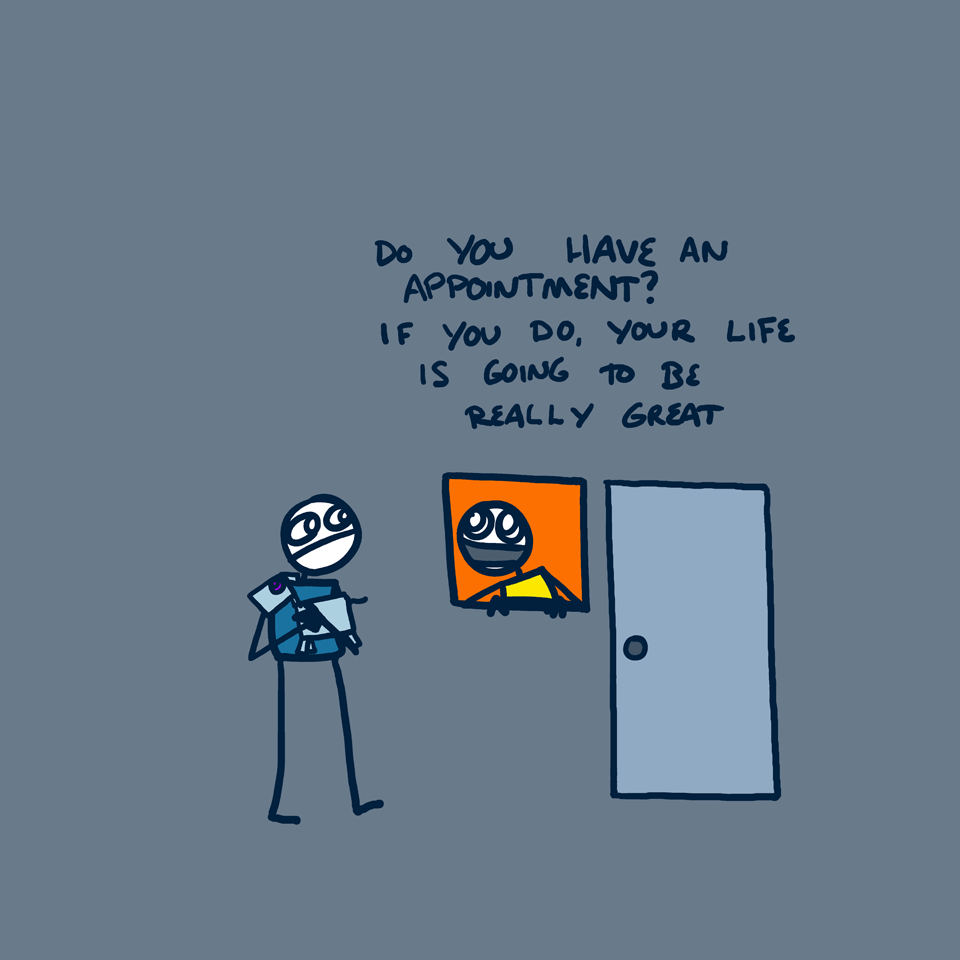 DO YOU HAVE AN
APPOINTMENT?
IF YOU DO, YOUR LIFE
IS GOING TO BE
REALLY GREAT